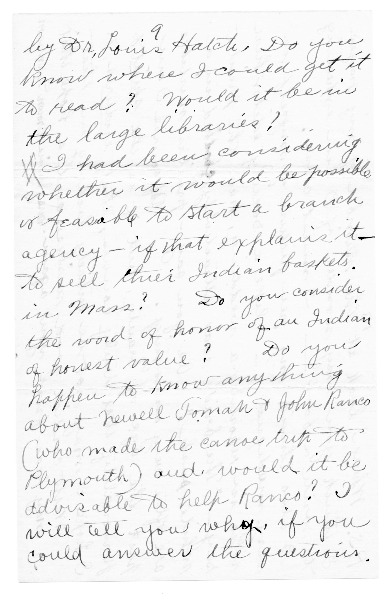 9
by Dr. Louis Hatch. Do you
know where I could get it
to read? Would it be in
the large libraries?
I had been considering
whether it would be possible
or feasible to start a branch
agency - if that explains it -
to sell thier Indian baskets.
in Mass? Do you consider
the word of honor of an Indian
of honest value? Do you
happen to know anything
about Newell Tomah & John Ranco
(who made the canoe trip to
Plymouth) and would it be
advisable to help Ranco? I
will tell you why, if you
could answer the questions.